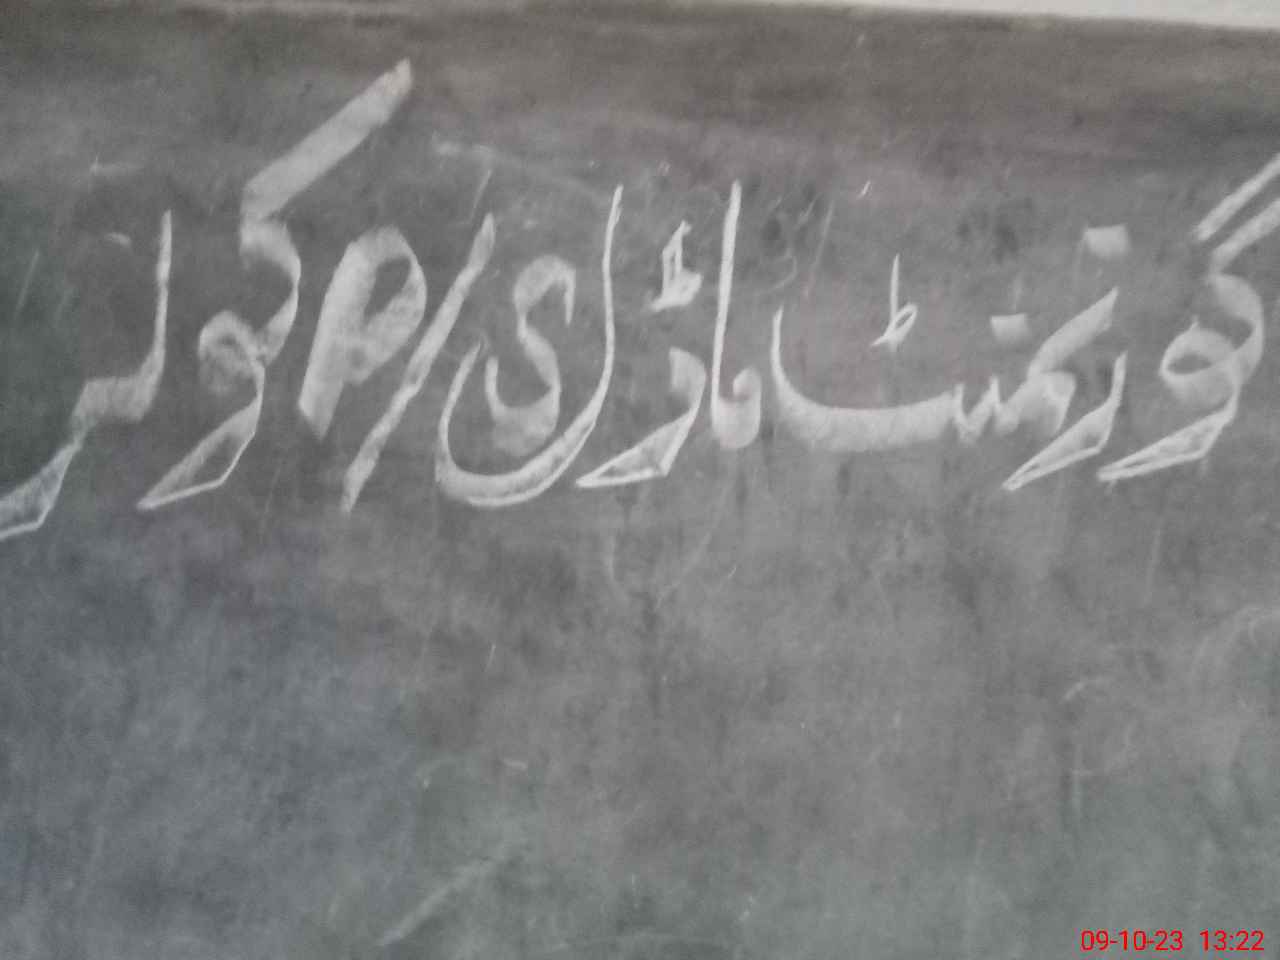 گورنمنٹ ماڈل ی/م کولر
09-10-23 13:22